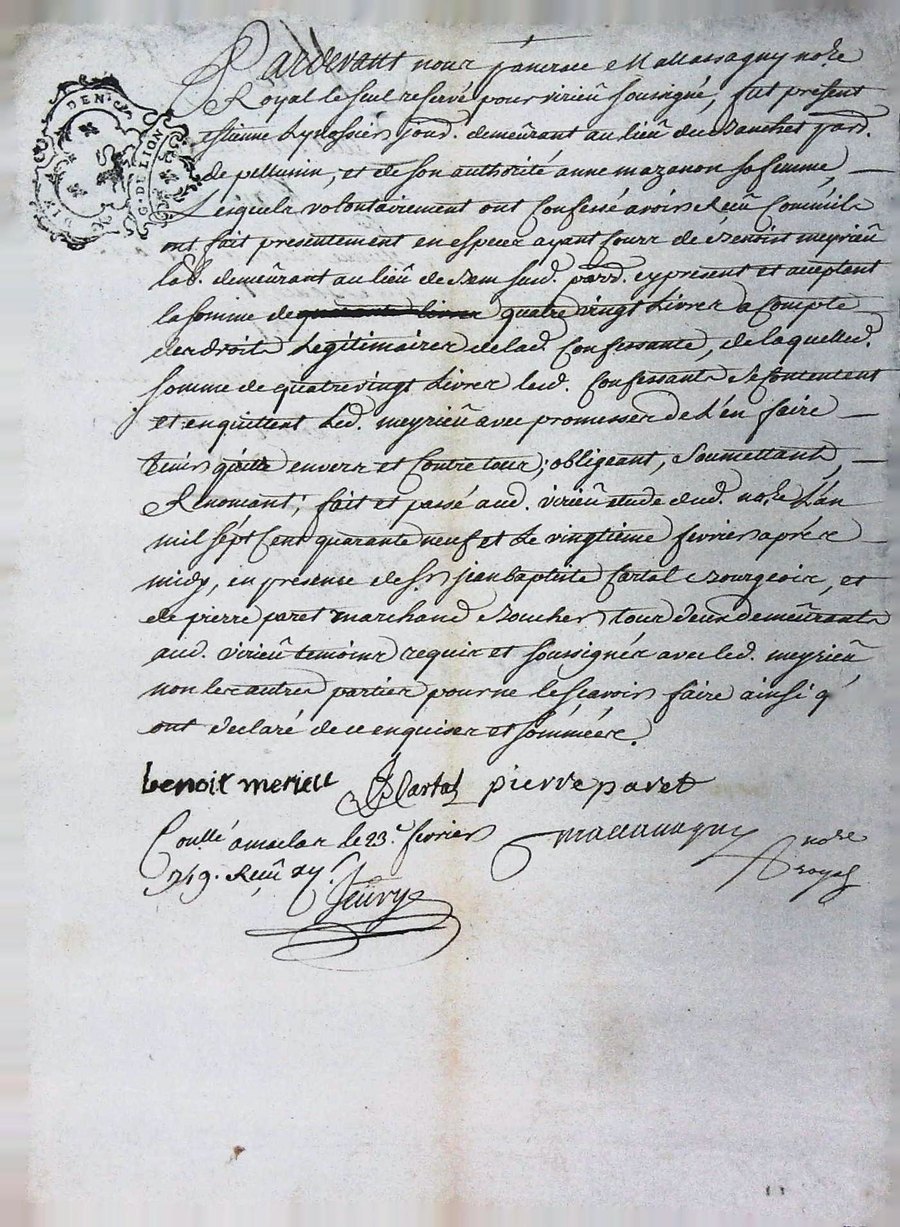 DEN.rs
G. DE LION
Pardevant nous pancrace Mallassagny nore
Royal le seul reservé pour virieu soussigné, fut present
Etienne jour. demeurant au lieu du Banchet parr.
de pellusin, et de son authorité anne mazanon sa femme,
Lesquels volontairement ont Confessé avoir Reçeu Comm'ils
ont fait presentement en especes ayant Cours de Benoist meyrieu
lab. demeurant au lieu de parr. cy present et aceptant
la somme de quarante livres quatre vingt Livres a Compte
des droits Legitimaires de lad. Confessante, de laquelle d.
somme de quatre vingt Livres lesd. Confessants se Contentent
et en quittent Led. meyrieu avec promesses de L'en faire
tenir quitte envers et Contre tous; obligeant, Soumettants,
Renonçant; fait et passé aud. virieu etude dud. nore L'an
mil sept Cent quarante neuf et Le vingtieme fevrier aprés
midy, en presense de sr jean baptiste Cartal Bourgeois, et
de pierre paret marchand Boucher tous deux demeurants
aud. virieu temoins requis et soussignés avec led. meyrieu
non les autres parties pour ne le sçavoir faire ainsi q'
ont declaré de ce enquises et sommées.
benoit merieu Cartal pierre paret
Coullé a maclas le 23e fevrier Mallassagny nore
749. Reçeu royal
fleury